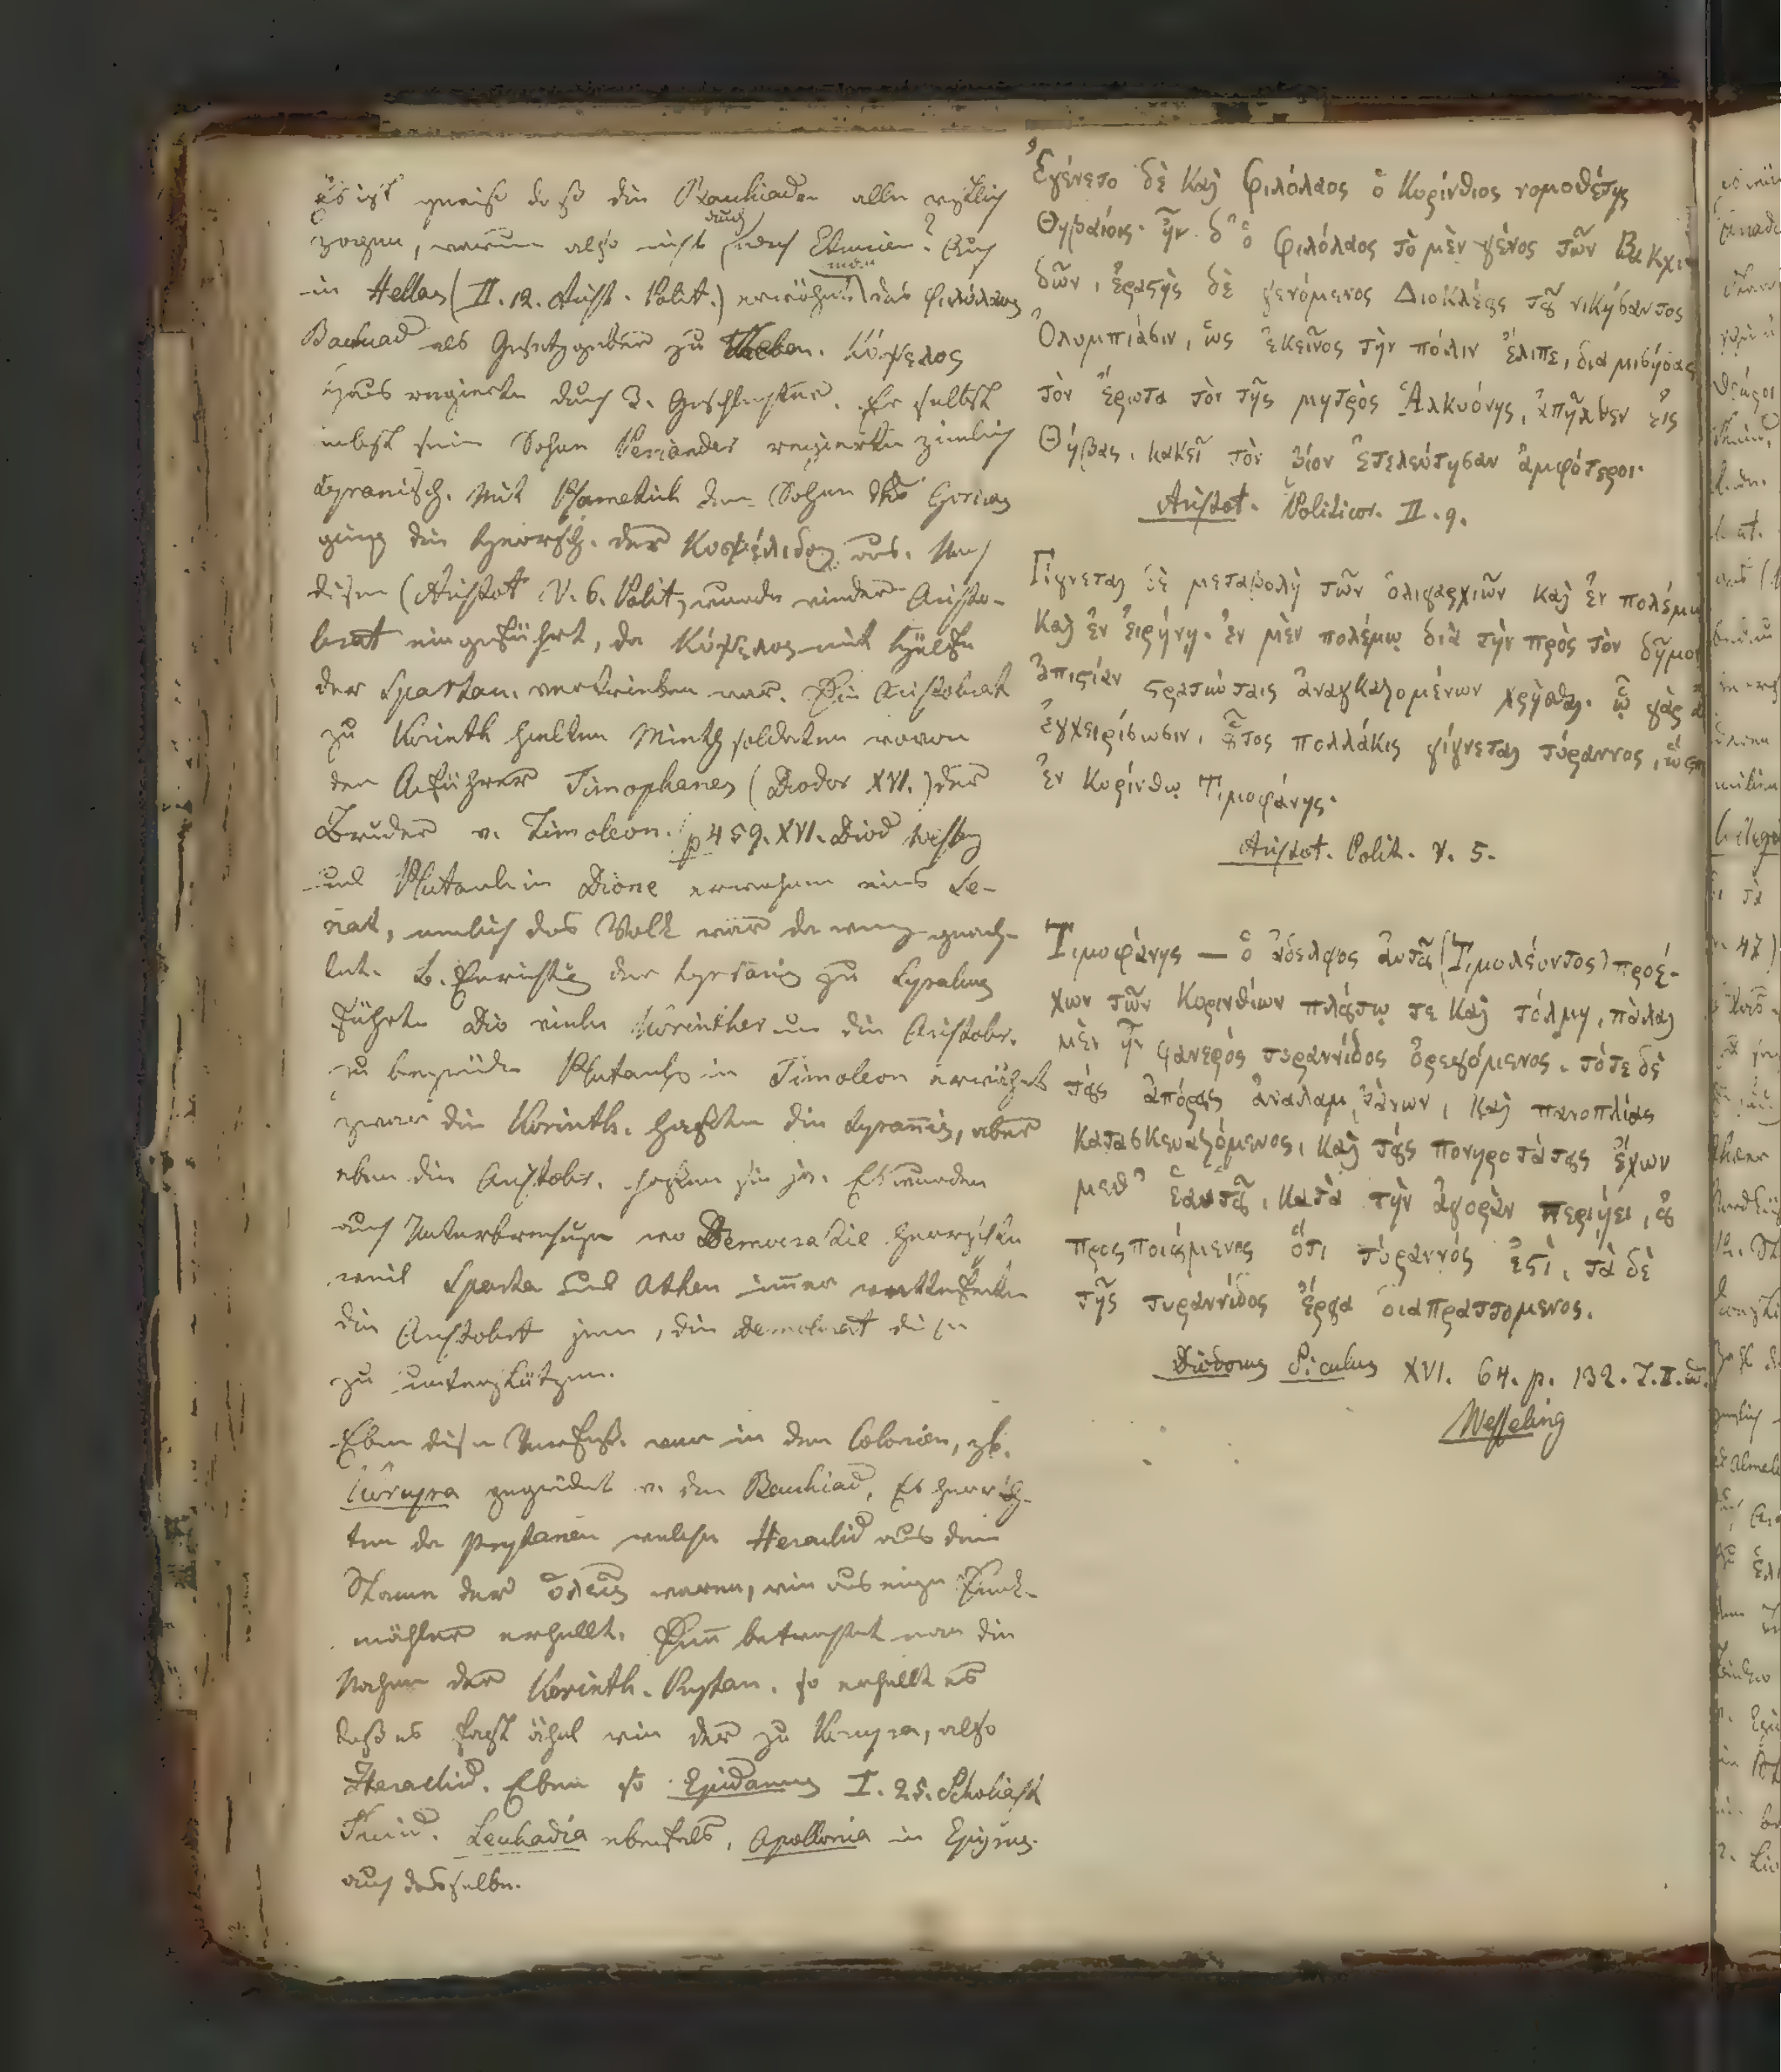 Es ist gewiß daß die Bacchiaden alle westlich
zogen, warum also nicht auch nach Etrurien? Auch
in Hellas (II. 12. Arist. Polit.) erwähnt man das Φιλόλαος
Bacchiad als Gesetzgeber zu Theben. Κύψελος
Haus regierte durch 3. Geschlechter. Er selbst
nebst sein Sohn Periander regierten ziemlich
tyranisch. Mit Psametich dem Sohn des Gorias
ging die Herrsch. der Κυψέλιδος aus. Nach
diesem (Aristot V. 6. Polit) wurde wieder Aristo-
krat eingeführt, da Κύψελος mit Hülfe
der Spartan. vertrieben war. Die Aristokrat
zu Korinth hielten Miethsoldaten wovon
der Anführer Timophanes (Diodor XVI.) der
Bruder v. Timoleon. p 459. XVI. Diod Wessling
und Plutarch in Dione erwähnen eines Se-
nat, nemlich das Volk war da wenig geach-
tet. b. Errichtg der Tyranis zu Syrakus
führte Dio viele Korinther um die Aristokr.
zu begründen Plutarch in Timoleon erwähnt
zwar die Korinth. haßten die Tyrannis, aber
eben die Aristokr. haßten sie ja. Es wurden
auch Unterbrechungen wo Democratie herrschte
weil Sparta und Athen immer wetteiferten
die Aristokrat jene, die Demokrat diese
zu unterstützen.
Eben diese Verfaß. war in den Colonien, zb.
Korcyra gegründet v. den Bacchiad. Es herrsch-
ten da Prytanen welche Heraclid aus dem
Stamm der waren, wie aus einigen Denk-
mähler erhellt. Denn betrachtet man die
Nahmen der Korinth. Prytan. so erhellt es
daß es fast ähnl wie der zu Korcyra, also
Heraclid. Eben so Epidamnus I. 25. Scholiast
Thucid. Leukadia ebenfals, Apollonia in Epirus
auch dasselbe.
Ἐγένετο δὲ καὶ Φιλόλαος ὁ Κορίνθιος νομοθέτης
Θηβαίοις· ἦν δ' ὁ Φιλόλαος τὸ μὲν γένος τῶν Βακχι-
δῶν, ἐραστὴς δὲ γενόμενος Διοκλέους τοῦ νικήσαντος
Ὀλυμπιάσιν, ὡς ἐκεῖνος τὴν πόλιν ἔλιπε, διαμισήσας
τὸν ἔρωτα τὸν τῆς μητρὸς Ἀλκυόνης, ἀπῆλθεν εἰς
Θήβας, κακεῖ τὸν βίον ἐτελεύτησαν ἀμφότεροι·
Aristot. Politicor. II. 9.
Γίγνεται δὲ μεταβολὴ τῶν ὀλιγαρχιῶν καὶ ἐν πολέμῳ
καὶ ἐν εἰρήνῃ. ἐν μὲν πολέμῳ διὰ τὴν πρὸς τὸν δῆμον
ἀπιστίαν στρατιώταις ἀναγκαζομένων χρῆσθαι. ᾧ γὰρ ἂ
ἐγχειρίσωσιν, οὗτος πολλάκις γίγνεται τύραννος, ὥσπ
ἐν Κορίνθῳ Τιμοφάνης·
Aristot. Polit. V. 5.
Τιμοφάνης — ὁ ἀδελφος ἀυτοῦ (Τιμολέοντος) προέ-
χων τῶν Κορινθίων πλούτῳ τε καὶ τόλμῃ, πάλαι
μὲν ἦν φανερὸς τυραννίδος ὀρεγόμενος. τότε δὲ
τοὺς ἀπόρους ἀναλαμβάνων, καὶ πανοπλίας
κατασκευαζόμενος, καὶ τοὺς πονηροτάτους ἔχων
μεθ' ἑαυτοῦ, κατὰ τὴν ἀγορὰν περιῄει, οὐ
προςποιούμενος ὅτι τύραννός ἐστι, τὰ δὲ
τῆς τυραννίδος ἔργα διαπραττομενος.
Diodorus Siculus XVI. 64. p. 132. T. II. ed.
Wesseling